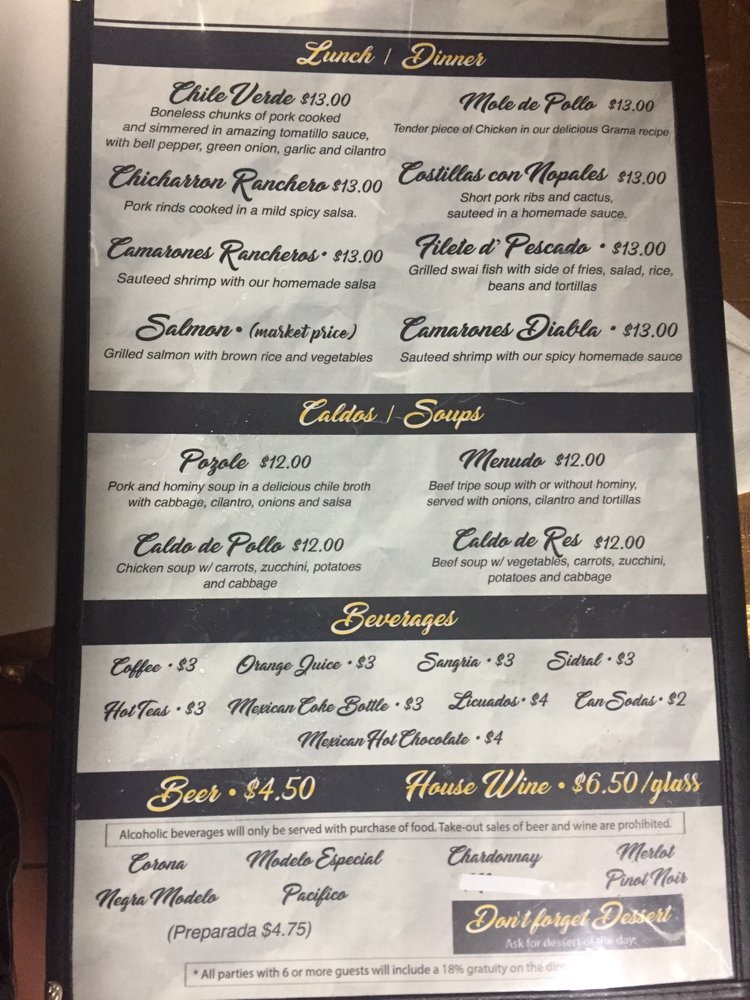 Lunch / Dinner
Chile Verde $13.00
Boneless chunks of pork cooked
and simmered in amazing tomatillo sauce,
with bell pepper, green onion, garlic and cilantro
Mole de Pollo $13.00
Tender piece of Chicken in our delicious Grama recipe
Chicharron Ranchero $13.00
Pork rinds cooked in a mild spicy salsa.
Costillas con Nopales $13.00
Short pork ribs and cactus,
sauteed in a homemade sauce.
Camarones Rancheros • $13.00
Sauteed shrimp with our homemade salsa
Filete d' Pescado • $13.00
Grilled swai fish with side of fries, salad, rice,
beans and tortillas
Salmon • (market price)
Grilled salmon with brown rice and vegetables
Camarones Diabla • $13.00
Sauteed shrimp with our spicy homemade sauce
Caldos / Soups
Pozole $12.00
Pork and hominy soup in a delicious chile broth
with cabbage, cilantro, onions and salsa
Menudo $12.00
Beef tripe soup with or without hominy,
served with onions, cilantro and tortillas
Caldo de Pollo $12.00
Chicken soup w/ carrots, zucchini, potatoes
and cabbage
Caldo de Res $12.00
Beef soup w/ vegetables, carrots, zucchini,
potatoes and cabbage
Beverages
Coffee • $3 Orange Juice • $3 Sangria • $3 Sidral • $3
Hot Teas • $3 Mexican Coke Bottle • $3 Licuados • $4 Can Sodas • $2
Mexican Hot Chocolate • $4
Beer • $4.50 House Wine • $6.50/glass
Alcoholic beverages will only be served with purchase of food. Take-out sales of beer and wine are prohibited.
Corona Modelo Especial Chardonnay Merlot
Negra Modelo Pacifico Pinot Noir
(Preparada $4.75)
Don't forget Dessert
Ask for dessert of the day.
* All parties with 6 or more guests will include a 18% gratuity on the